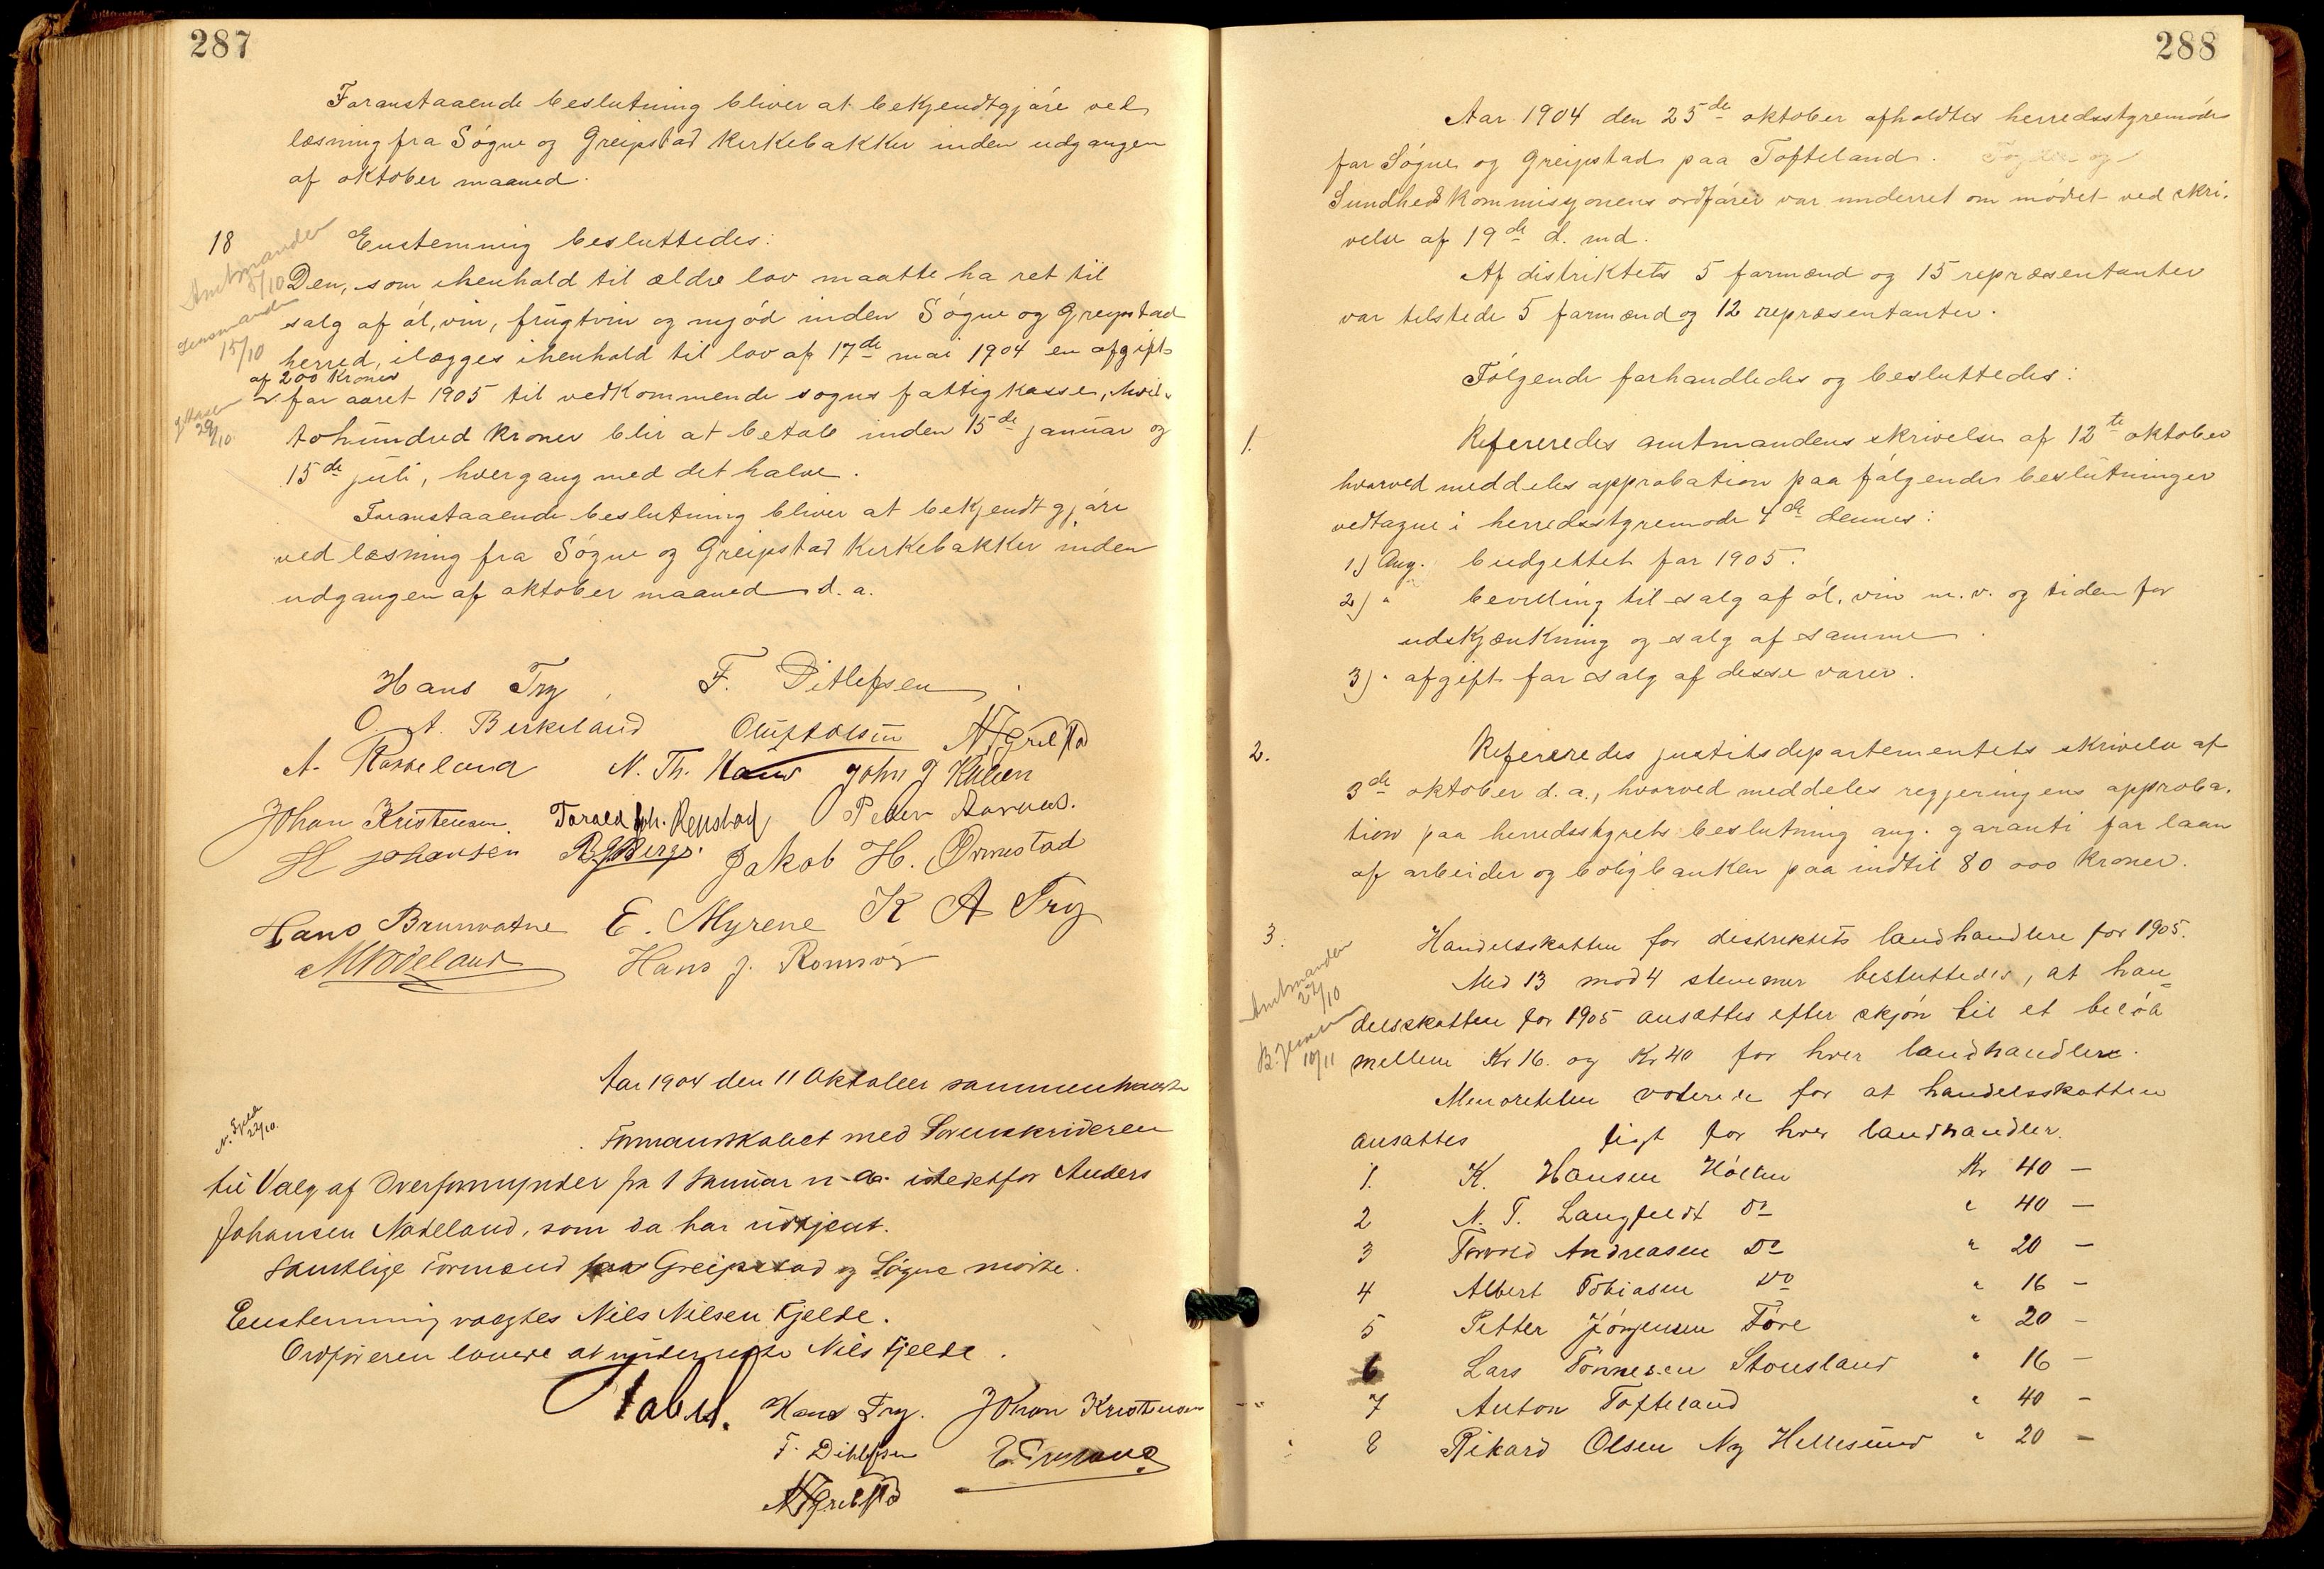 287
Foranstaaende beslutning bliver at bekjendtgjøre ved
læsning fra Søgne og Greipstad kirkebakker inden udgangen
af oktober maaned.
18 Enstemmig besluttedes:
Amtmanden
5/10
Den, som ihenhold til ældre lov maatte ha ret til
salg af øl, vin, frugtvin og mjød inden Søgne og Greipstad
Lensmanden
15/10
herred, ilægges ihenhold til lov af 17de mai 1904 en afgift
af 200 kroner
for aaret 1905 til vedkommende sogns fattigkasse, hvil-
29/10
tohundred kroner blir at betale inden 15de januar og
15de juli, hver gang med det halve.
Foranstaaende beslutning bliver at bekjendtgjøre
ved læsning fra Søgne og Greipstad kirkebakker inden
udgangen af oktober maaned d. a.
Hans Try F. Ditlefsen
O. A. Birkeland Oluf Olsen
A. Rosseland N. Th. John J
Johan Kristensen Torald Joh. Repstad Peder Aarnes.
H Johansen B. J. Berge. Jakob H. Ormestad
Hans Brunvatne E. Myrene K A Try
Hans J. Romsvig
Aar 1904 den 11 Oktober sammentraadte
Formandskabet med Sorenskriveren
N. Fjelde
22/10.
til Valg af Overformynder fra 1 Januar n. a. istedetfor Anders
Johansen Nodeland, som da har udtjent.
Samtlige Formænd fra Greipstad og Søgne mødte.
Enstemmig valgtes Nils Nilsen Fjelde.
Ordføreren lovede at underrette Nils Fjelde.
Hans Try. Johan Kristensen
F. Ditlefsen
288
Aar 1904 den 25de oktober afholdtes herredsstyremøde
for Søgne og Greipstad paa Tofteland.
Sundhedskommisjonens ordfører var underret om mødet ved skri-
velse af 19de d. md.
Af distriktets 5 formænd og 15 repræsentanter
var tilstede 5 formænd og 12 repræsentanter.
Følgende forhandledes og besluttedes:
1. Refereredes amtmandens skrivelse af 12te oktober
hvorved meddeles approbation paa følgende beslutninger
vedtagne i herredsstyremøde 4de dennes:
1) Ang. budgettet for 1905.
2) " bevilling til salg af øl, vin m. v. og tiden for
udskjænkning og salg af samme.
3) " afgift for salg af disse varer.
2. Refereredes justitsdepartementets skrivelse af
3de oktober d. a., hvorved meddeles regjeringens approba-
tion paa herredsstyrets beslutning ang. garanti for laan
af arbeider og boligbanken paa indtil 80 000 kroner.
3. Handelsskatten for distriktets landhandlere for 1905.
Amtmanden
27/10
Med 13 mod 4 stemmer besluttedes, at han-
delsskatten for 1905 ansættes efter skjøn til et beløb
B. Jensen
10/11
mellem Kr 16. og Kr 40 for hver landhandlere.
Menoreteten voterede for at handelsskatten
ansattes ligt for hver landhandler.
1. K. Hansen Høllen Kr 40 —
2 N. T. Langfeldt Do " 40 —
3 Torvald Andreasen Do " 20 —
4 Albert Tobiasen Do " 16 —
5 Petter Jørgensen Føre " 20 —
6 Lars Tønnesen Stousland " 16 —
7 Anton Tofteland " 40 —
8 Rikard Olsen Ny Hellesund " 20 —